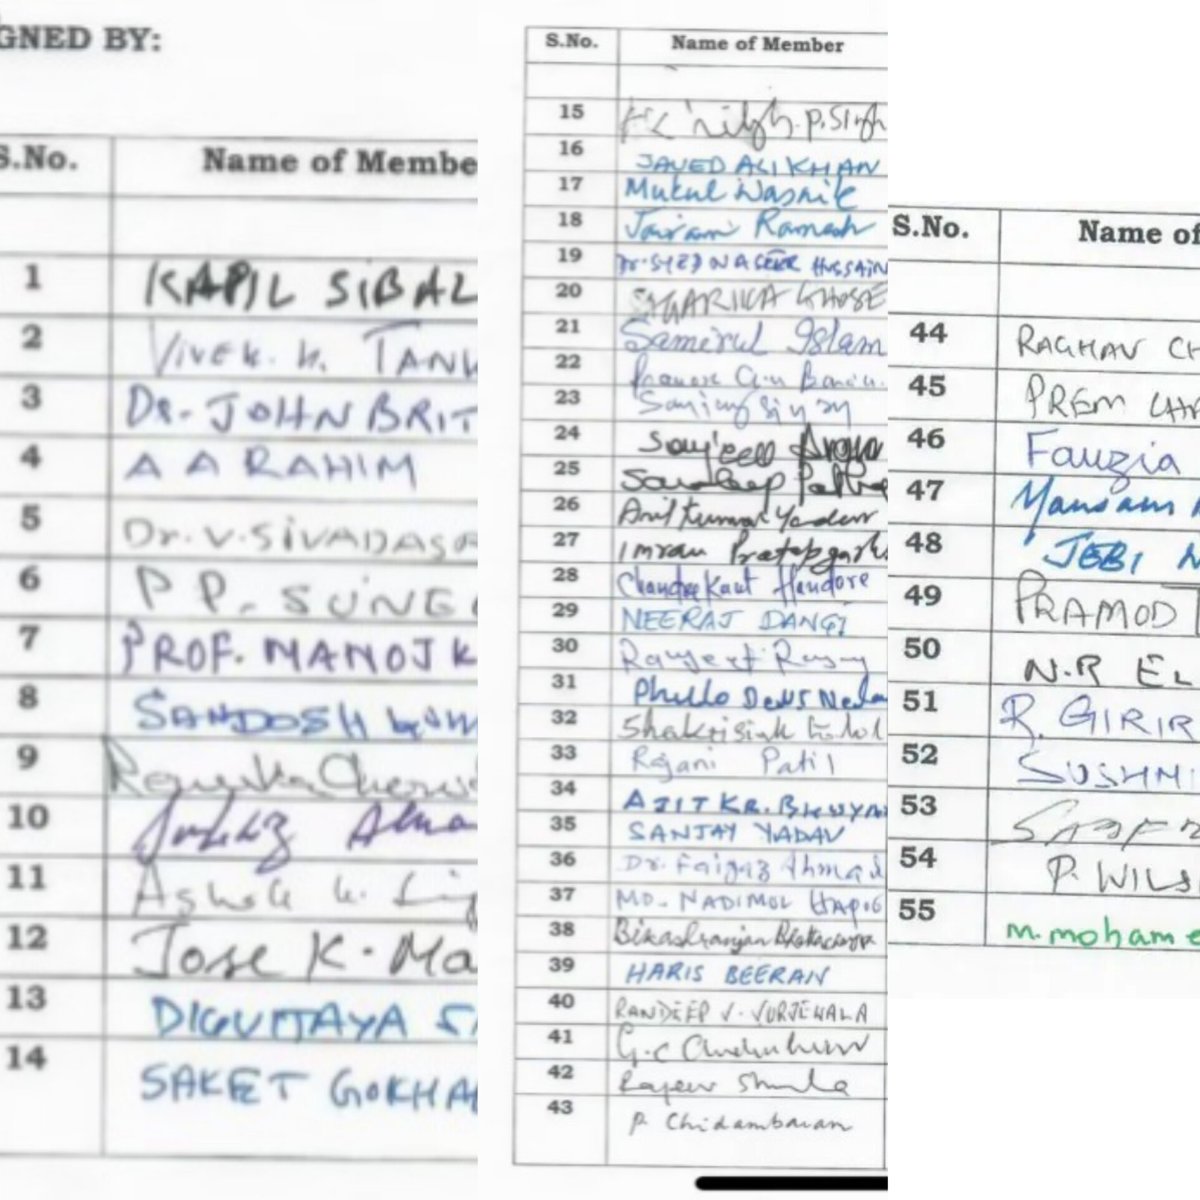 GNED BY:
S.No. Name of Membe
1 KAPIL SIBAL
2 Vivek. k. TANK
3 Dr. JOHN BRIT
4 A A RAHIM
5 Dr. V. SIVADASA
6 P P. SUNE
7 PROF. MANOJ K
8 SANDOSH KUM
9
10
11 Ashok k.
12 Jose K. Ma
13 DIGVIJAYA S
14 SAKET GOKHA
S.No. Name of Member
15 P. Singh
16 JAVED ALI KHAN
17 Mukul Wasnik
18 Jairam Ramesh
19 Dr. SYED NASEER HUSSAIN
20 SAGARIKA GHOSE
21 Samirul Islam
22
23 Sanjay Singh
24
25 Sandeep Patha
26 Anil Kumar Yadav
27 Imran Pratapgarhi
28 Chandrakant Handore
29 NEERAJ DANGI
30 Ranjeet Ranjan
31 Phulo Devi Neta
32 Shaktisinh Gohil
33 Rajani Patil
34 AJIT KR. BHUYAN
35 SANJAY YADAV
36 Dr. Faiyaz Ahmad
37 MD. NADIMUL HAQUE
38 Bikashranjan Bhattacharya
39 HARIS BEERAN
40 RANDEEP S. SURJEWALA
41 G.C Chandrashekhar
42 Rajeev Shukla
43 P Chidambaram
S.No. Name of
44 RAGHAV CH
45 PREM CHA
46 Fauzia
47
48 JEBI M
49 PRAMOD T
50 N.R EL
51 R. GIRIR
52 SUSHMI
53
54 P. WILS
55 m. mohame